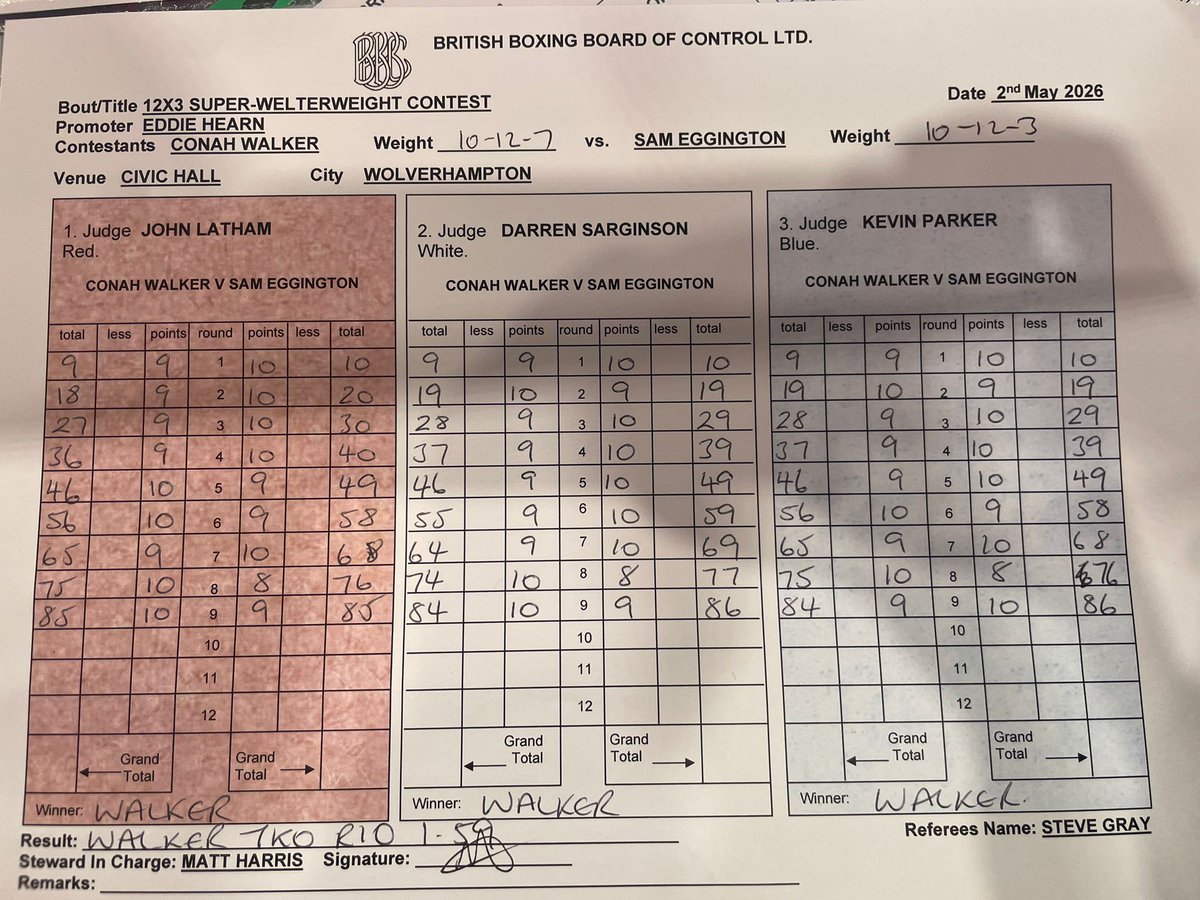 BBBC
BRITISH BOXING BOARD OF CONTROL LTD.
Bout/Title 12X3 SUPER-WELTERWEIGHT CONTEST
Date 2nd May 2026
Promoter EDDIE HEARN
Contestants CONAH WALKER Weight 10-12-7 vs. SAM EGGINGTON Weight 10-12-3
Venue CIVIC HALL City WOLVERHAMPTON
1. Judge JOHN LATHAM
Red.
CONAH WALKER V SAM EGGINGTON
total less points round points less total
9 9 1 10 10
18 9 2 10 20
27 9 3 10 30
36 9 4 10 40
46 10 5 9 49
56 10 6 9 58
65 9 7 10 68
75 10 8 8 76
85 10 9 9 85
10
11
12
Grand Total
Grand Total
Winner: WALKER
2. Judge DARREN SARGINSON
White.
CONAH WALKER V SAM EGGINGTON
total less points round points less total
9 9 1 10 10
19 10 2 9 19
28 9 3 10 29
37 9 4 10 39
46 9 5 10 49
55 9 6 10 59
64 9 7 10 69
74 10 8 8 77
84 10 9 9 86
10
11
12
Grand Total
Grand Total
Winner: WALKER
3. Judge KEVIN PARKER
Blue.
CONAH WALKER V SAM EGGINGTON
total less points round points less total
9 9 1 10 10
19 10 2 9 19
28 9 3 10 29
37 9 4 10 39
46 9 5 10 49
56 10 6 9 58
65 9 7 10 68
75 10 8 8 76
84 9 9 10 86
10
11
12
Grand Total
Grand Total
Winner: WALKER.
Result: WALKER TKO R10 1-59
Referees Name: STEVE GRAY
Steward In Charge: MATT HARRIS Signature:
Remarks: